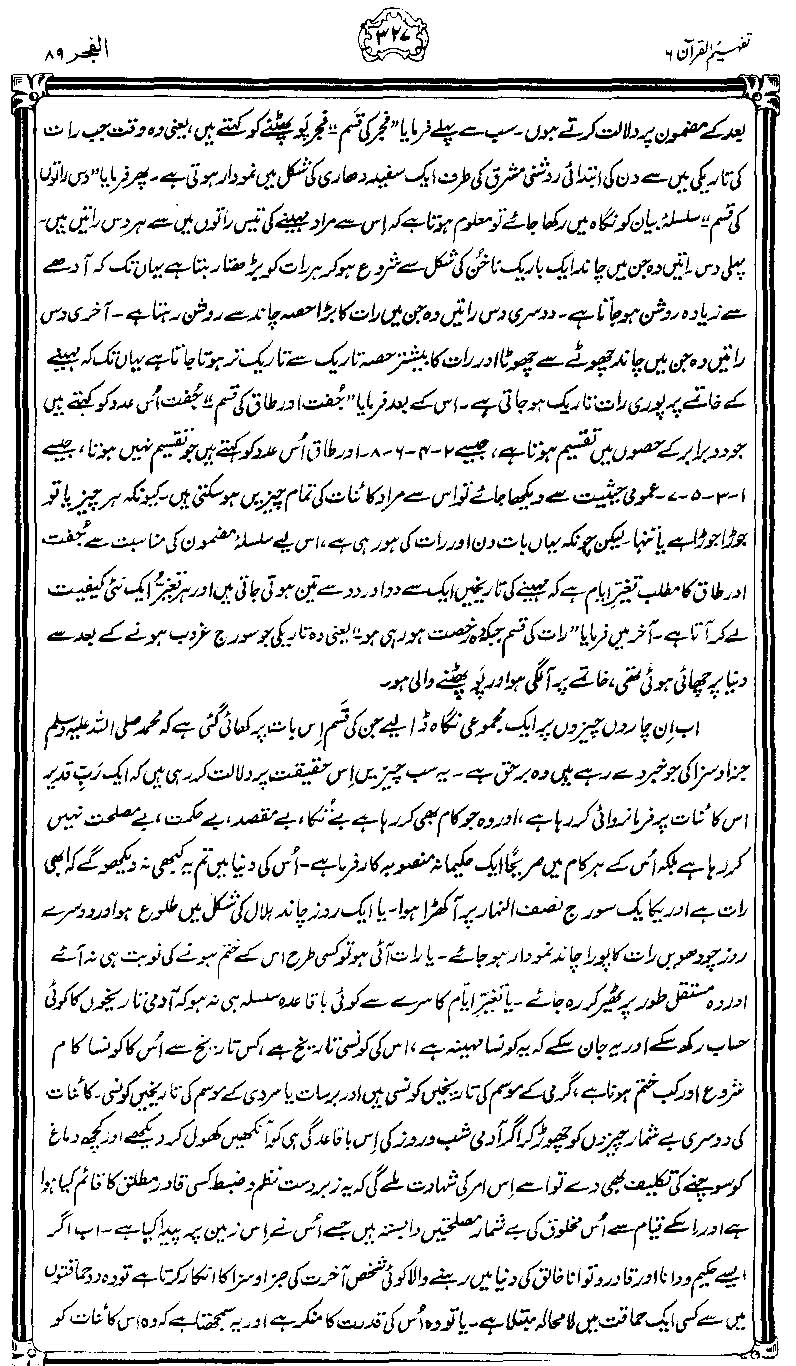 تفہیم القرآن ۶
۳۲۷
الفجر ۸۹
بعد کے مضمون پر دلالت کرتے ہوں۔ سب سے پہلے فرمایا ”فجر کی قَسم“ فجر پَو پھٹنے کو کہتے ہیں، یعنی وہ وقت جب رات
کی تاریکی میں سے دن کی ابتدائی روشنی مشرق کی طرف ایک سفید دھاری کی شکل میں نمودار ہوتی ہے۔ پھر فرمایا ”دس راتوں
کی قسم“ سلسلۂ بیان کو نگاہ میں رکھا جائے تو معلوم ہوتا ہے کہ اِس سے مراد مہینے کی تیس راتوں میں سے ہر دس راتیں ہیں۔
پہلی دس راتیں وہ جن میں چاند ایک باریک ناخُن کی شکل سے شروع ہو کر ہر رات کو بڑھتا رہتا ہے یہاں تک کہ آدھے
سے زیادہ روشن ہو جاتا ہے۔ دوسری دس راتیں وہ جن میں رات کا بڑا حصہ چاند سے روشن رہتا ہے۔ آخری دس
راتیں وہ جن میں چاند چھوٹے سے چھوٹا اور رات کا بیشتر حصہ تاریک سے تاریک تر ہوتا جاتا ہے یہاں تک کہ مہینے
کے خاتمے پر پوری رات تاریک ہو جاتی ہے۔ اس کے بعد فرمایا ”جُفت اور طاق کی قسم“ جُفت اُس عدد کو کہتے ہیں
جو دو برابر کے حصوں میں تقسیم ہوتا ہے، جیسے ۲-۴-۶-۸۔ اور طاق اُس عدد کو کہتے ہیں جو تقسیم نہیں ہوتا، جیسے
۱-۳-۵-۷۔ عمومی حیثیت سے دیکھا جائے تو اس سے مراد کائنات کی تمام چیزیں ہو سکتی ہیں۔ کیونکہ ہر چیز یا تو
جوڑا جوڑا ہے یا تنہا۔ لیکن چونکہ یہاں بات دن اور رات کی ہو رہی ہے، اس لیے سلسلۂ مضمون کی مناسبت سے جُفت
اور طاق کا مطلب تغیّرِ ایام ہے کہ مہینے کی تاریخیں ایک سے دو اور دو سے تین ہوتی جاتی ہیں اور ہر تغیّر ایک نئی کیفیت
لے کر آتا ہے۔ آخر میں فرمایا ”رات کی قسم جبکہ وہ رخصت ہو رہی ہو“ یعنی وہ تاریکی جو سورج غروب ہونے کے بعد سے
دنیا پر چھائی ہوئی تھی، خاتمے پر آ لگی ہو اور پَو پھٹنے والی ہو۔
اب اِن چاروں چیزوں پر ایک مجموعی نگاہ ڈالیے جن کی قَسم اِس بات پر کھائی گئی ہے کہ محمد صلی اللہ علیہ وسلم
جزا و سزا کی جو خبر دے رہے ہیں وہ برحق ہے۔ یہ سب چیزیں اِس حقیقت پر دلالت کر رہی ہیں کہ ایک ربِّ قدیر
اس کائنات پر فرمانروائی کر رہا ہے، اور وہ جو کام بھی کر رہا ہے بے تُکا، بے مقصد، بے حکمت، بے مصلحت نہیں
کر رہا ہے بلکہ اُس کے ہر کام میں صریحًا ایک حکیمانہ منصوبہ کار فرما ہے۔ اُس کی دنیا میں تم یہ کبھی نہ دیکھو گے کہ ابھی
رات ہے اور یکایک سورج نصف النہار پر آ کھڑا ہوا۔ یا ایک روز چاند ہلال کی شکل میں طلوع ہو اور دوسرے
روز چودھویں رات کا پورا چاند نمودار ہو جائے۔ یا رات آئی ہو تو کسی طرح اس کے ختم ہونے کی نوبت ہی نہ آئے
اور وہ مستقل طور پر ٹھیر کر رہ جائے۔ یا تغیّرِ ایّام کا سرے سے کوئی باقاعدہ سلسلہ ہی نہ ہو کہ آدمی تاریخوں کا کوئی
حساب رکھ سکے اور یہ جان سکے کہ یہ کونسا مہینہ ہے، اس کی کونسی تاریخ ہے، کس تاریخ سے اُس کا کونسا کام
شروع اور کب ختم ہونا ہے، گرمی کے موسم کی تاریخیں کونسی ہیں اور برسات یا سردی کے موسم کی تاریخیں کونسی۔ کائنات
کی دوسری بے شمار چیزوں کو چھوڑ کر اگر آدمی شب و روز کی اِس باقاعدگی ہی کو آنکھیں کھول کر دیکھے اور کچھ دماغ
کو سوچنے کی تکلیف بھی دے تو اسے اِس امر کی شہادت ملے گی کہ یہ زبردست نظم و ضبط کسی قادرِ مطلق کا قائم کیا ہوا
ہے اور اِسکے قیام سے اُس مخلوق کی بے شمار مصلحتیں وابستہ ہیں جسے اُس نے اِس زمین پر پیدا کیا ہے۔ اب اگر
ایسے حکیم و دانا اور قادر و توانا خالق کی دنیا میں رہنے والا کوئی شخص آخرت کی جزا و سزا کا انکار کرتا ہے تو وہ دو حماقتوں
میں سے کسی ایک حماقت میں لامحالہ مبتلا ہے۔ یا تو وہ اُس کی قدرت کا منکر ہے اور یہ سمجھتا ہے کہ وہ اس کائنات کو